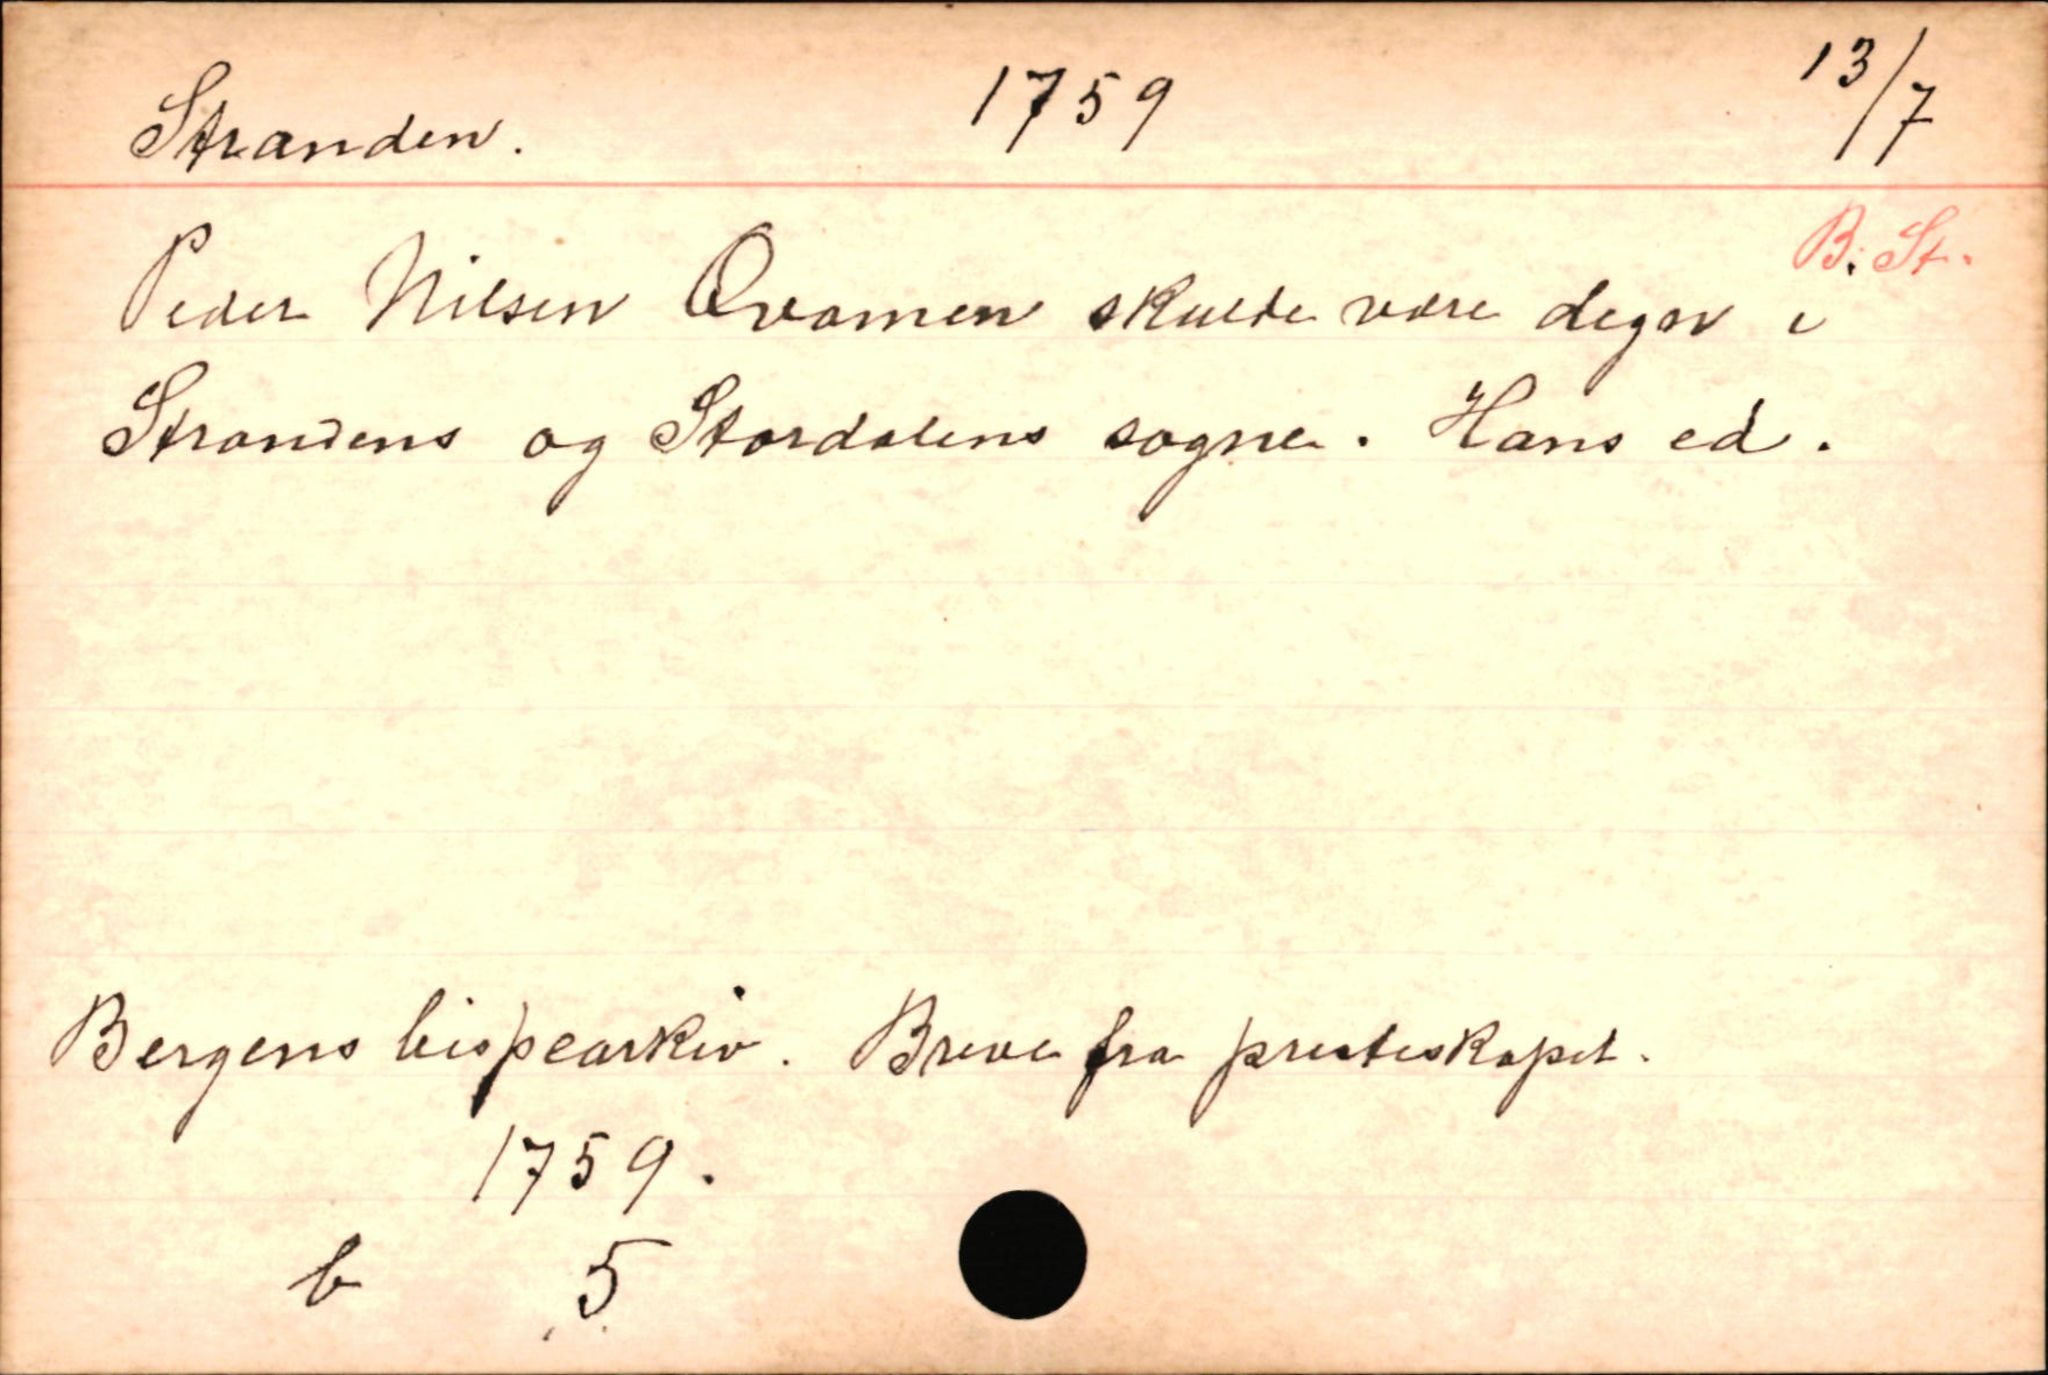 Stranden. 1759 13/7
B. St.
Peder Nilsen Qvamen skulde være degn i
Strandens og Stordalens sogne. Hans ed.
Bergens bispearkiv. Breve fra presteskapet.
1759.
b 5